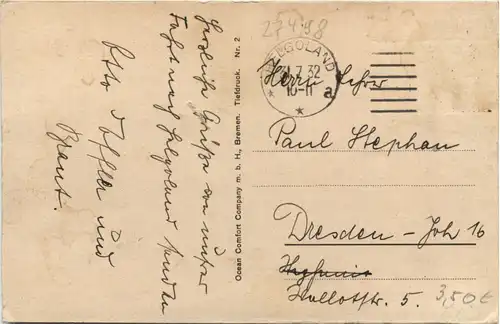 Herzliche Grüße von unserer
Fahrt nach Helgoland senden
Otto und
Braut.
Ocean Comfort Company m. b. H., Bremen. Tiefdruck. Nr. 2
27498
HELGOLAND
7.32
10-11
a
Herrn
Paul Stephan
Dresden - Joh 16
5.
3,50 €